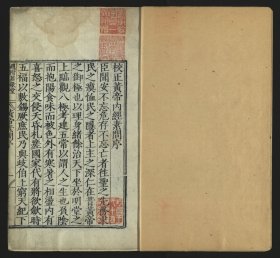 校正黃帝内經素問序
臣聞安不忘危存不忘亡者往聖之先務求
民之瘼恤民之隱者上主之深仁在昔黃帝
之御極也以理身緒餘治天下坐於明堂之
上臨觀八極考建五常以謂人之生也負陰
而抱陽食味而被色外有寒暑之相盪内有
喜怒之交侵夭昏札瘥國家代有將欲斂時
五福以敷錫厥庶民乃與岐伯上窮天紀下